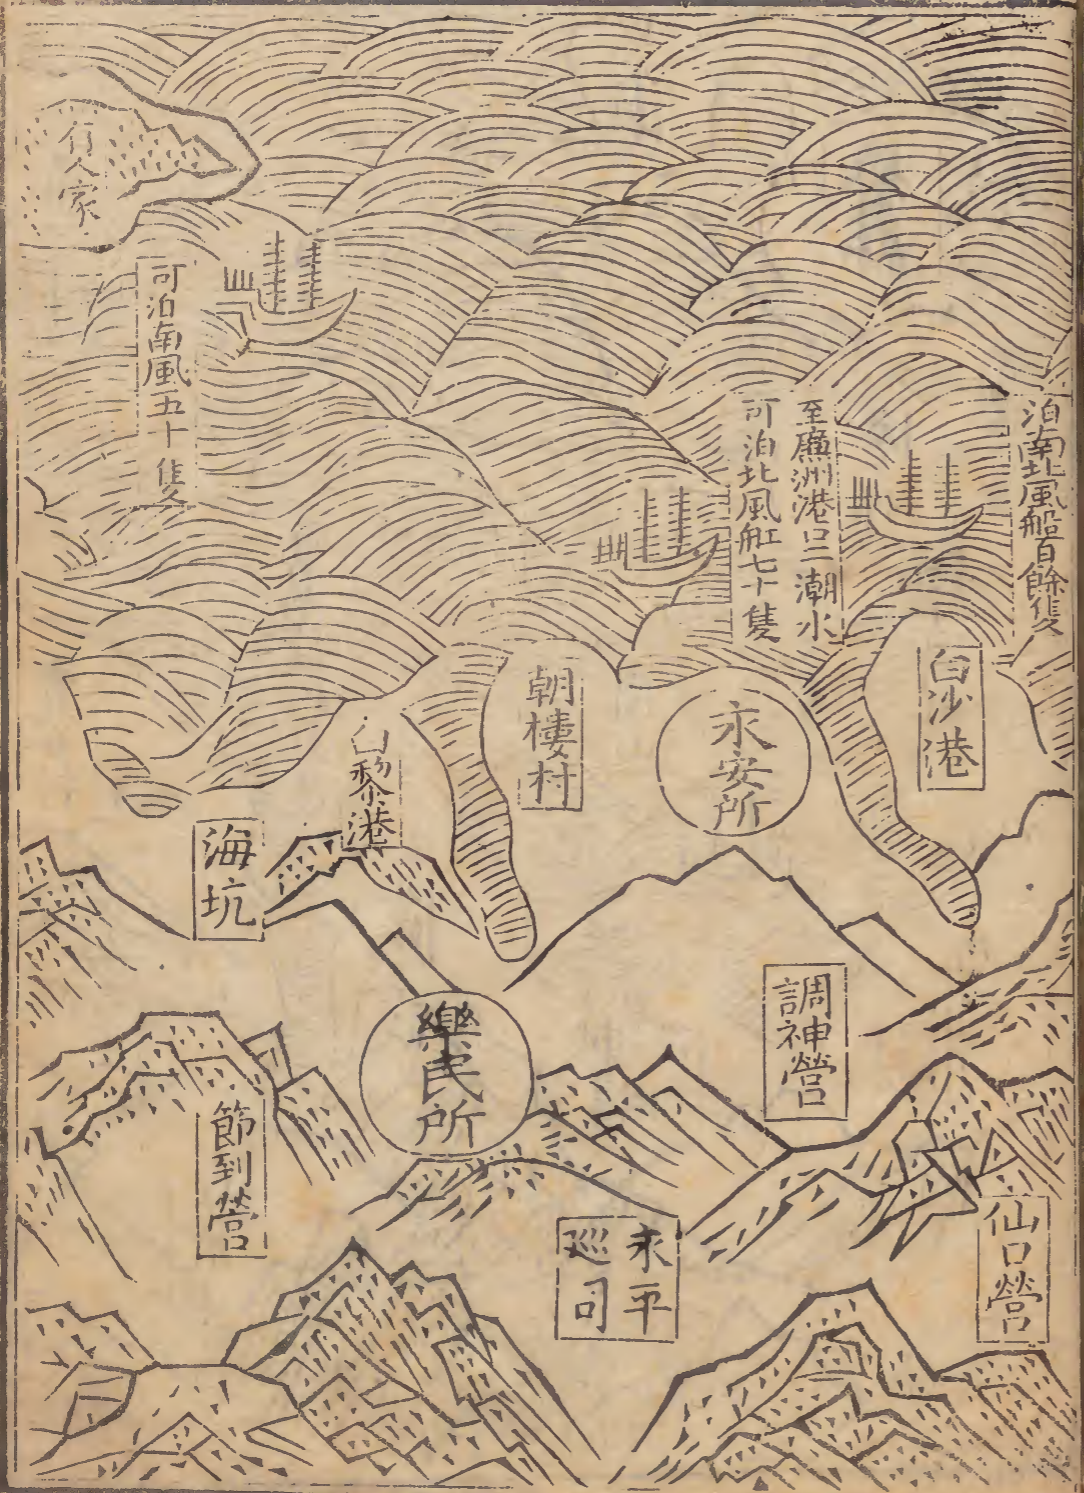 泊南北風船百餘隻
至廉洲港口二潮水
可泊北風舡七十隻
可泊南風五十隻
行人家
白沙港
永安所
朝樓村
白黎港
海坑
調神營
樂民所
節到營
仙口營
永平
巡司